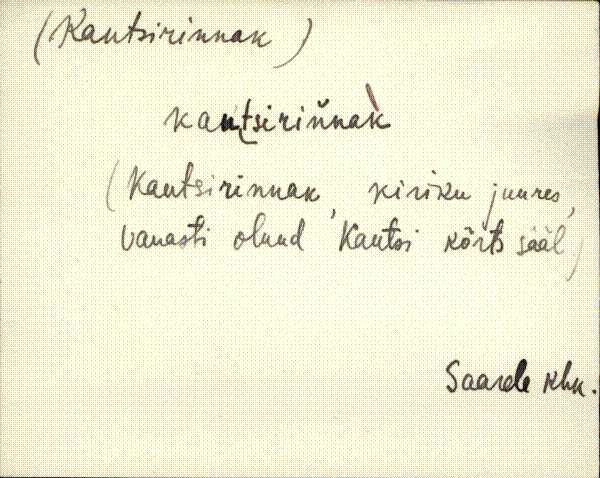 (Kantsirinnak)
kantsirińnak
(Kantsirinnak, kiriku juures,
vanasti olnud Kantsi kõrts sääl)
Saarde khk.